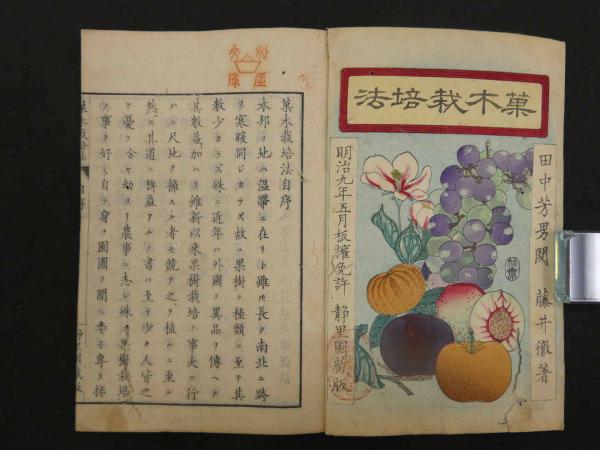 菓木栽培法
田中芳男閲 藤井徹著
明治九年五月板権免許 静里園蔵版
菓木栽培法自序
本邦ノ地ハ温帯ニ在リト雖モ長ク南北ニ跨
リ寒暖同ジカラズ故ニ果樹ノ種類ニ至テ其
数少カラズ殊ニ近年ハ外國ノ異品ヲ傳ヘテ
其數益加ハリ維新以来果樹栽培ノ業大ニ行
ハレ尺地ヲ擁スル者モ競テ之ヲ植ルニ至ル
然レ𪜈其道ニ裨益アルノ書ハ至テ少ク人皆之
ヲ憂ヲ余ヤ幼ヨリ農事ニ志シ殊ニ果樹栽培
ノ事ヲ好ミ自ラ身ヲ園圃ノ間ニ委子専ラ接
菓木栽培法
自序